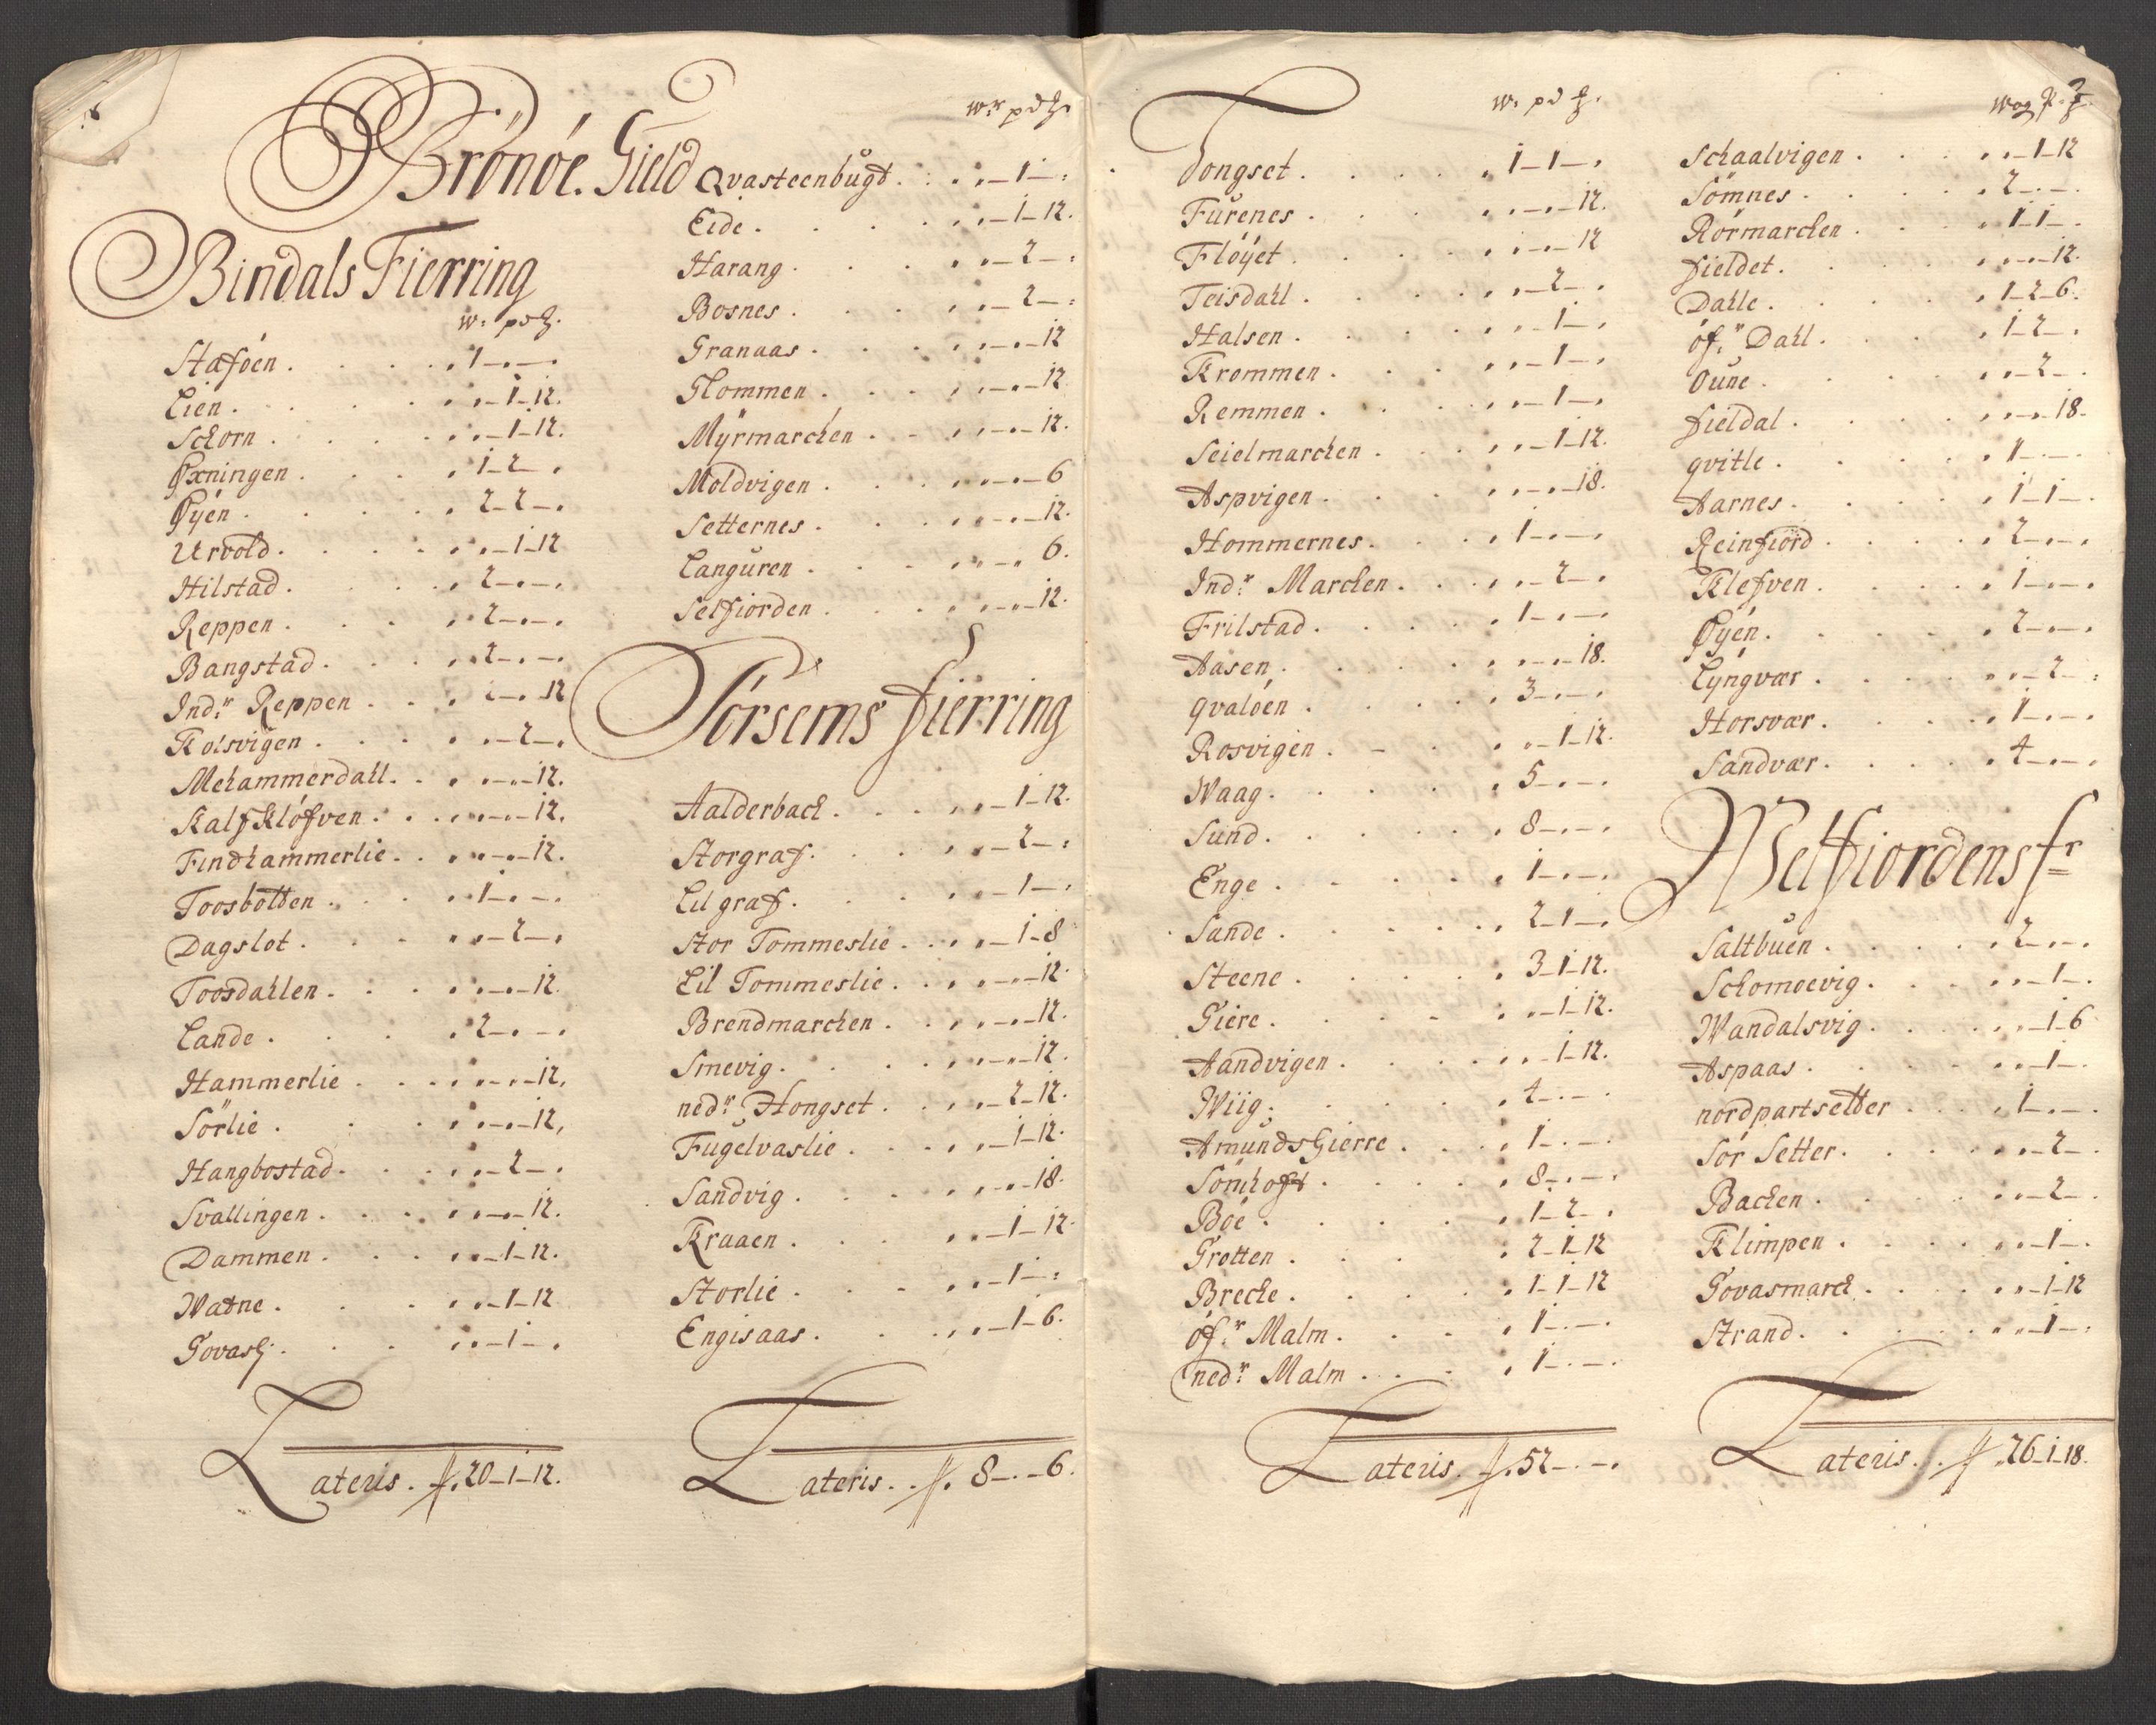 Brönöe. Gield
Bindals Fierring
w. pd ℔.
Stæföen . . . . . 1-.-.
Lien . . . . . . .-1-12.
Schorn . . . . . .-1-12.
Øxningen . . . . . 1-2-.
Øÿen . . . . . 2-2-.
Urvold . . . . . .-1-12
Hilstad . . . . . 2-.-.
Reppen . . . . . 2-.-.
Bangstad . . . . 2-.-.
Ind.r Reppen . . . 2-.-12
Kolsvigen . . . . .-2-.
Mehammerdahl . . . .-.-12.
Kalfkløfven . . . .-.-12.
Findhammerlie . . . .-.-12.
Toosbotten . . . . 1-.-.
Dagslot . . . . .-2-.
Toosdahlen . . . . .-.-12.
Lande . . . . . 2-.-.
Hammerlie . . . . .-.-12.
Sörlie . . . . . .-.-12,
Hangbostad . . . . .-2-.
Svallingen . . . . .-.-12.
Dammen . . . . .-1-12.
Watne . . . . .-1-12
Govasli . . . . .-1-.
Lateris . 20-1-12.
w.r pd ℔.
Qvasteenbugt . . . .-1-.
Eide . . . . . .-1-12.
Harang . . . . . .-2-.
Bosnes . . . . . .-2-.
Granaas . . . . . .-.-12
Glommen . . . . . .-.-12
Mÿrmarchen . . . . .-.-12.
Moldvigen . . . . .-.-6
Setternes . . . . .-.-12.
Languren . . . . .-.-6.
Selfiorden . . . . .-.-12.
Sörsems fierring
Aalderbach . . . . .-1-12.
Storgraf . . . . .-2-.
Lil graf . . . . .-1-.
Stor Tommeslie . . . .-1-8
Lil Tommeslie . . . .-.-12.
Brendmarchen . . . .-.-12.
Smevig . . . . . .-.-12.
ned.r Hongset . . . .-2-12.
Fugelvaslie . . . . .-1-12.
Sandvig . . . . . .-.-18.
Kraaen . . . . .-1-12.
Storlie . . . . .-1-.
Engisaas . . . . .-1-6.
Lateris . . 8-.-6.
w. pd ℔.
Tongset . . . . . 1-1-.
Furenes . . . . .-.-12.
Flöÿet . . . . .-.-12
Teisdahl . . . . .-2-.
Halsen . . . . .-1-.
Krommen . . . . .-1-.
Remmen . . . . .-1-.
Seielmarchen . . . .-1-12.
Aspvigen . . . . .-.-18.
Hommernes . . . . 1-.-.
Ind.r Marchen . . . .-2-.
Frilstad . . . . 1-.-.
Aasen . . . . .-.-18.
qvalöen . . . . 3-.-.
Rosvigen . - . . .-1-12.
Waag . . . . . 5-.-.
Sund . . . . . 8-.-.
Enge . . . . . 1-.-.
Sande . . . . . 2-1-.
Steene . . . . . 3-1-12.
Giere . . . . .-1-12.
Aandvigen . . . . .-1-12.
Wiig . . . . . 4-.-.
Amunds Gierre . . . 1-.-.
Sömhoft . . . . . 8-.-.
Böe . . . . . 1-2-.
Grotten . . . . 2-1-12
Breche . . . . . 1-1-12
öf.r Malm . . . . 1-.-.
ned.r Malm . . . . 1-.-.
Lateris . 52-.-.
wog P. ℔.
Schaalvigen . . . . .-1-12
Sömnes . . . . . 2-.-.
Rörmarchen . . . . 1-1-.
fieldet . . . . .-.-12.
Dahle . . . . . 1-2-6.
öf.r Dahl . . . . 1-2-.
Oune . . . . .-2-.
fieldal . . . . .-.-18.
qvitle . . . . . 1-.-.
Aarnes . . . . . 1-1-.
Reinfiord . . . . . 2-.-.
Klefven . . . . . 1-.-.
Øÿen . . . . . 2-.-.
Lyngvær . . . . .-2-.
Horsvær . . . . . 1-.-.
Sandvær . . . . . 4-.-.
Welfiordens f.r
Saltbuen . . . . . 2-.-.
Schomoevig . . . . .-1-.
Wandalsvig . . . . .-1-6
Aspaas . . . . .-1-.
nordpartsetter . . . 1-.-.
Sör Setter . . . . .-2-.
Bachen . . . . .-2-.
Klimpen . . . . .-1-.
Govasmarch . . . . .-1-12
Strand . . . . .-1-.
Lateris . . 26-1-18.